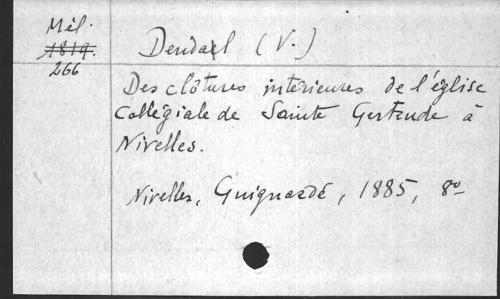 Mél.
1819.
266
Dendal (V.)
Des clôtures intérieures de l'église
Collégiale de Sainte Gertrude à
Nivelles.
Nivelles, Guignardé, 1885, 8º